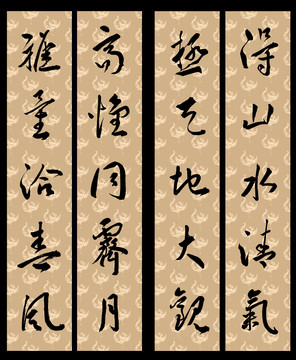 得山水清氣
極天地大觀
高懷同霽月
雅量洽春風